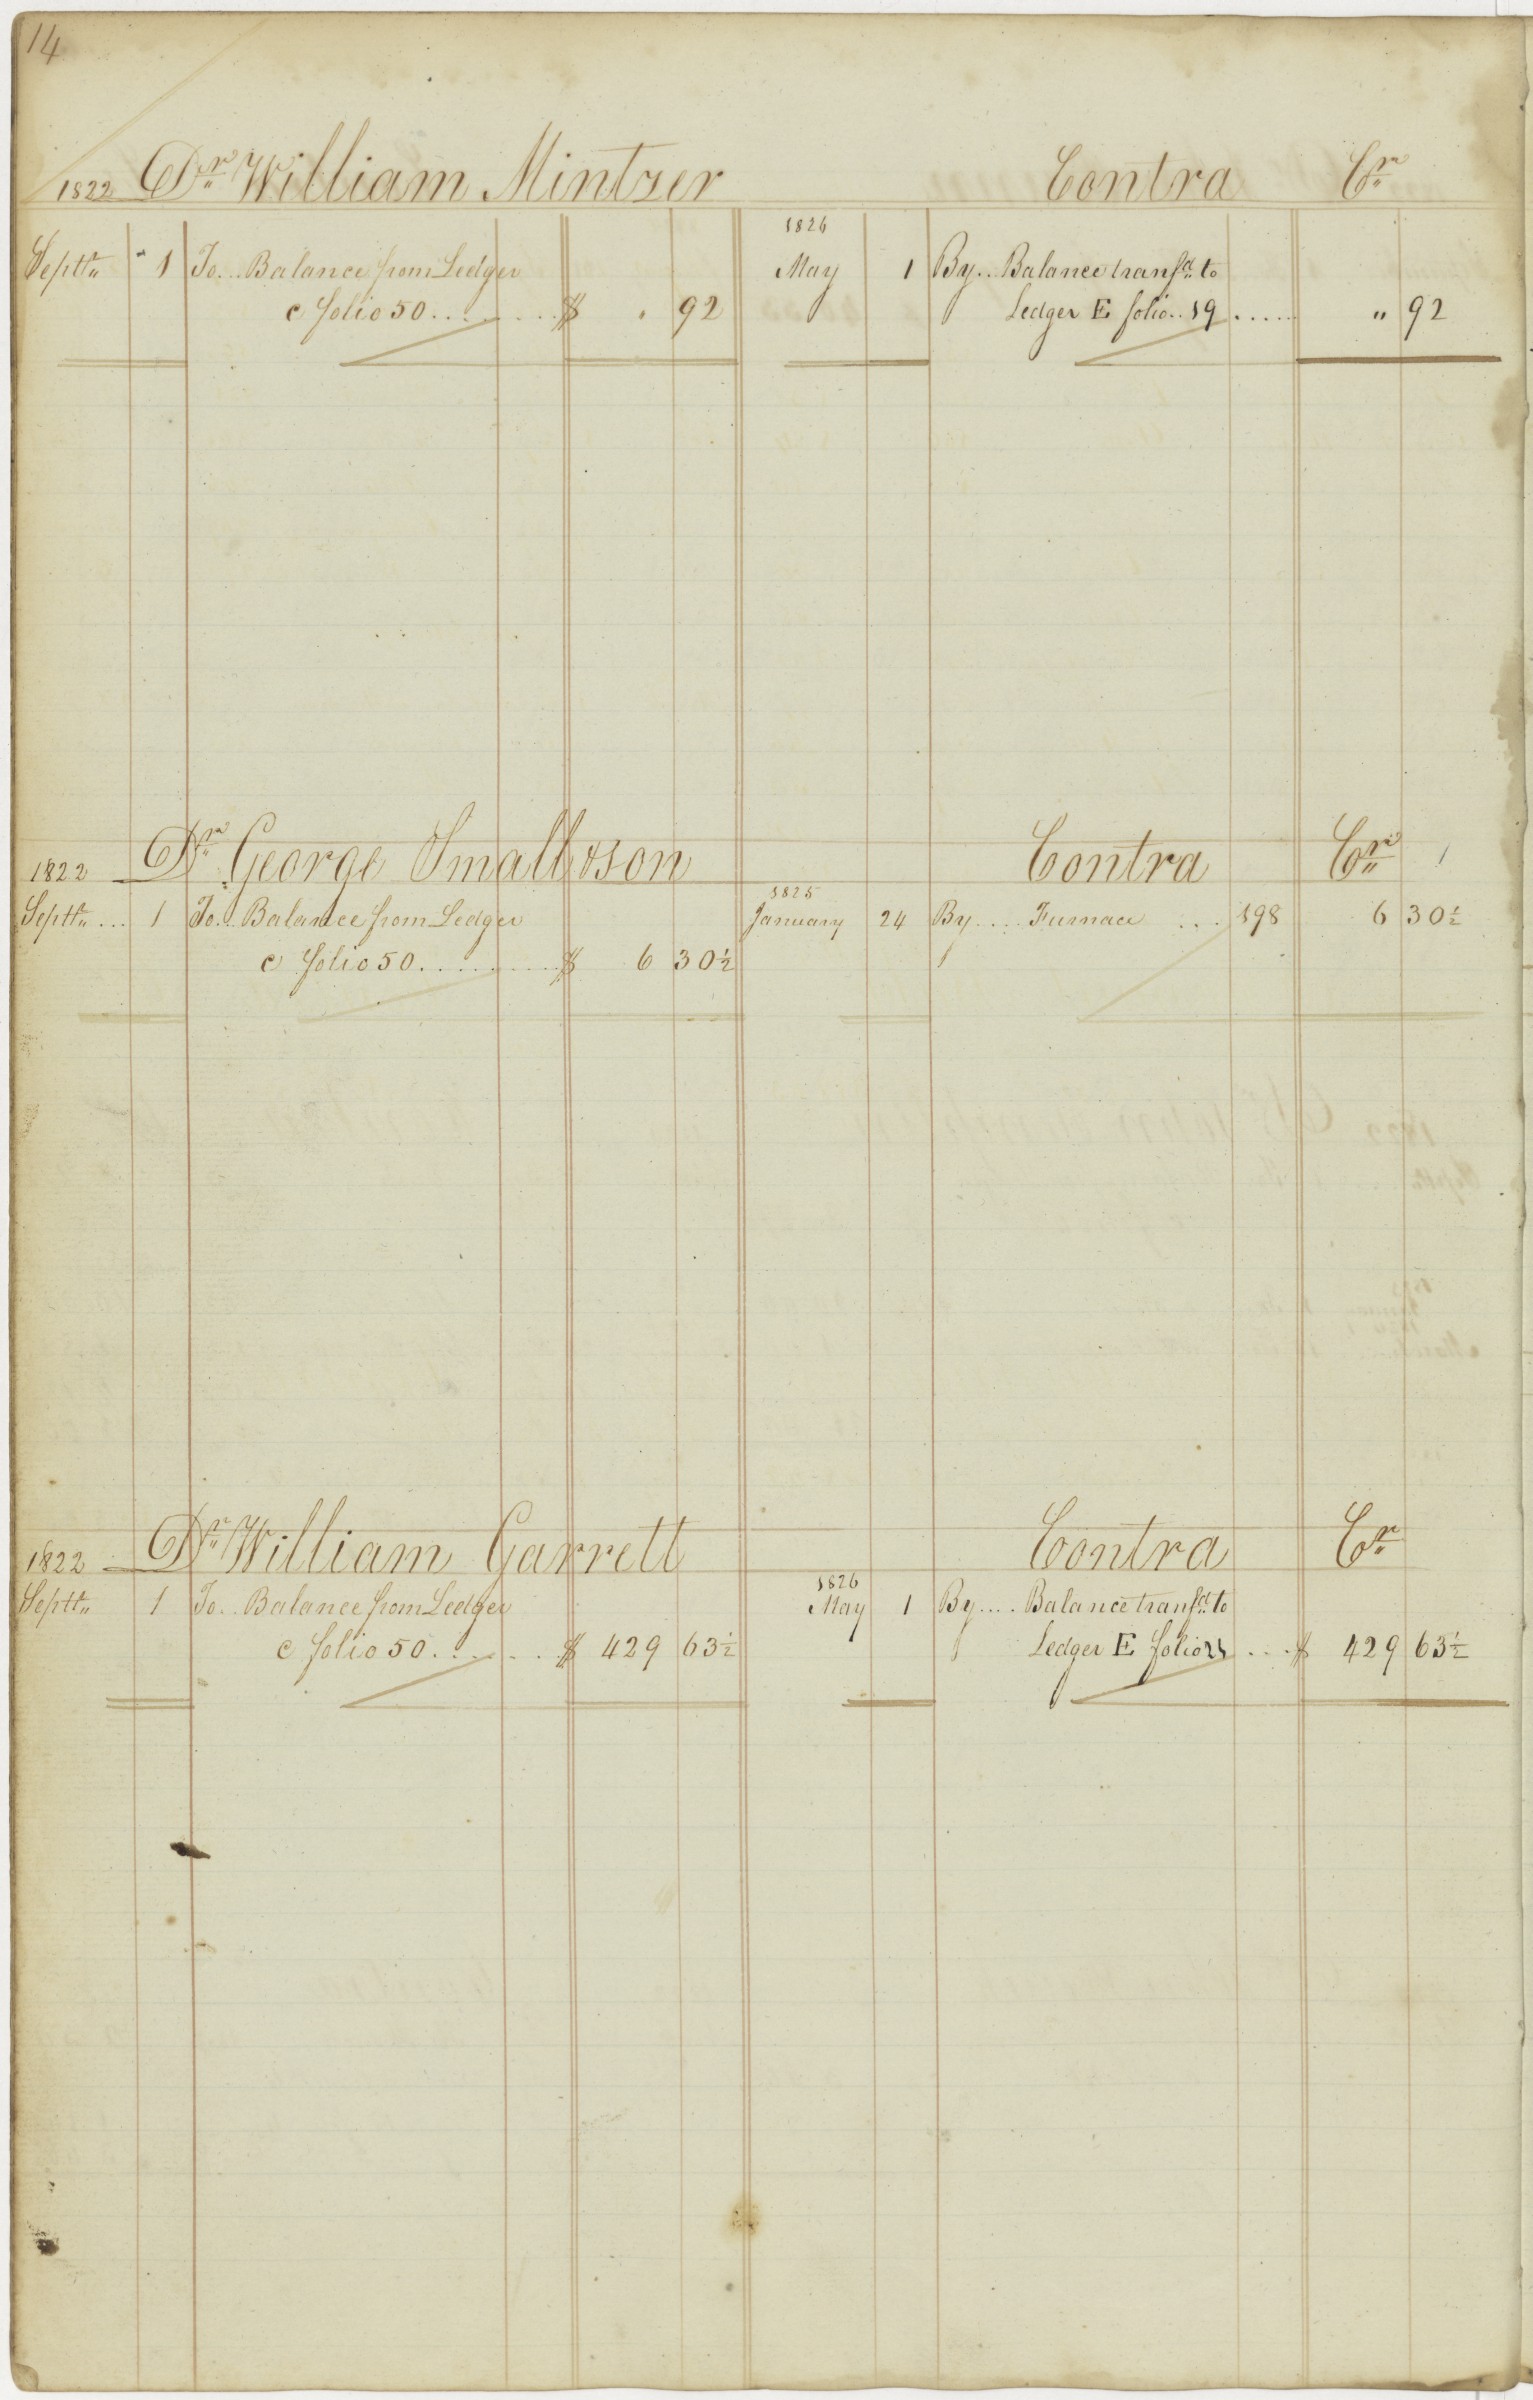 14
1822 Dr William Mintzer Contra Cr
Septr 1 To.. Balance from Ledger
c folio 50 ........ $ " 92
1826
May 1 By.. Balance transfd to
Ledger E folio.. 19 ..... " 92
1822 Dr George Small & son Contra Cr
Septr ... 1 To.. Balance from Ledger
c folio 50 .......... $ 6 30½
1825
January 24 By .... Furnace ... 198 6 30½
1822 Dr William Garrett Contra Cr
Septr 1 To.. Balance from Ledger
c folio 50 ....... $ 429 63½
1826
May 1 By .... Balance transfd to
Ledger E folio .... $ 429 63½